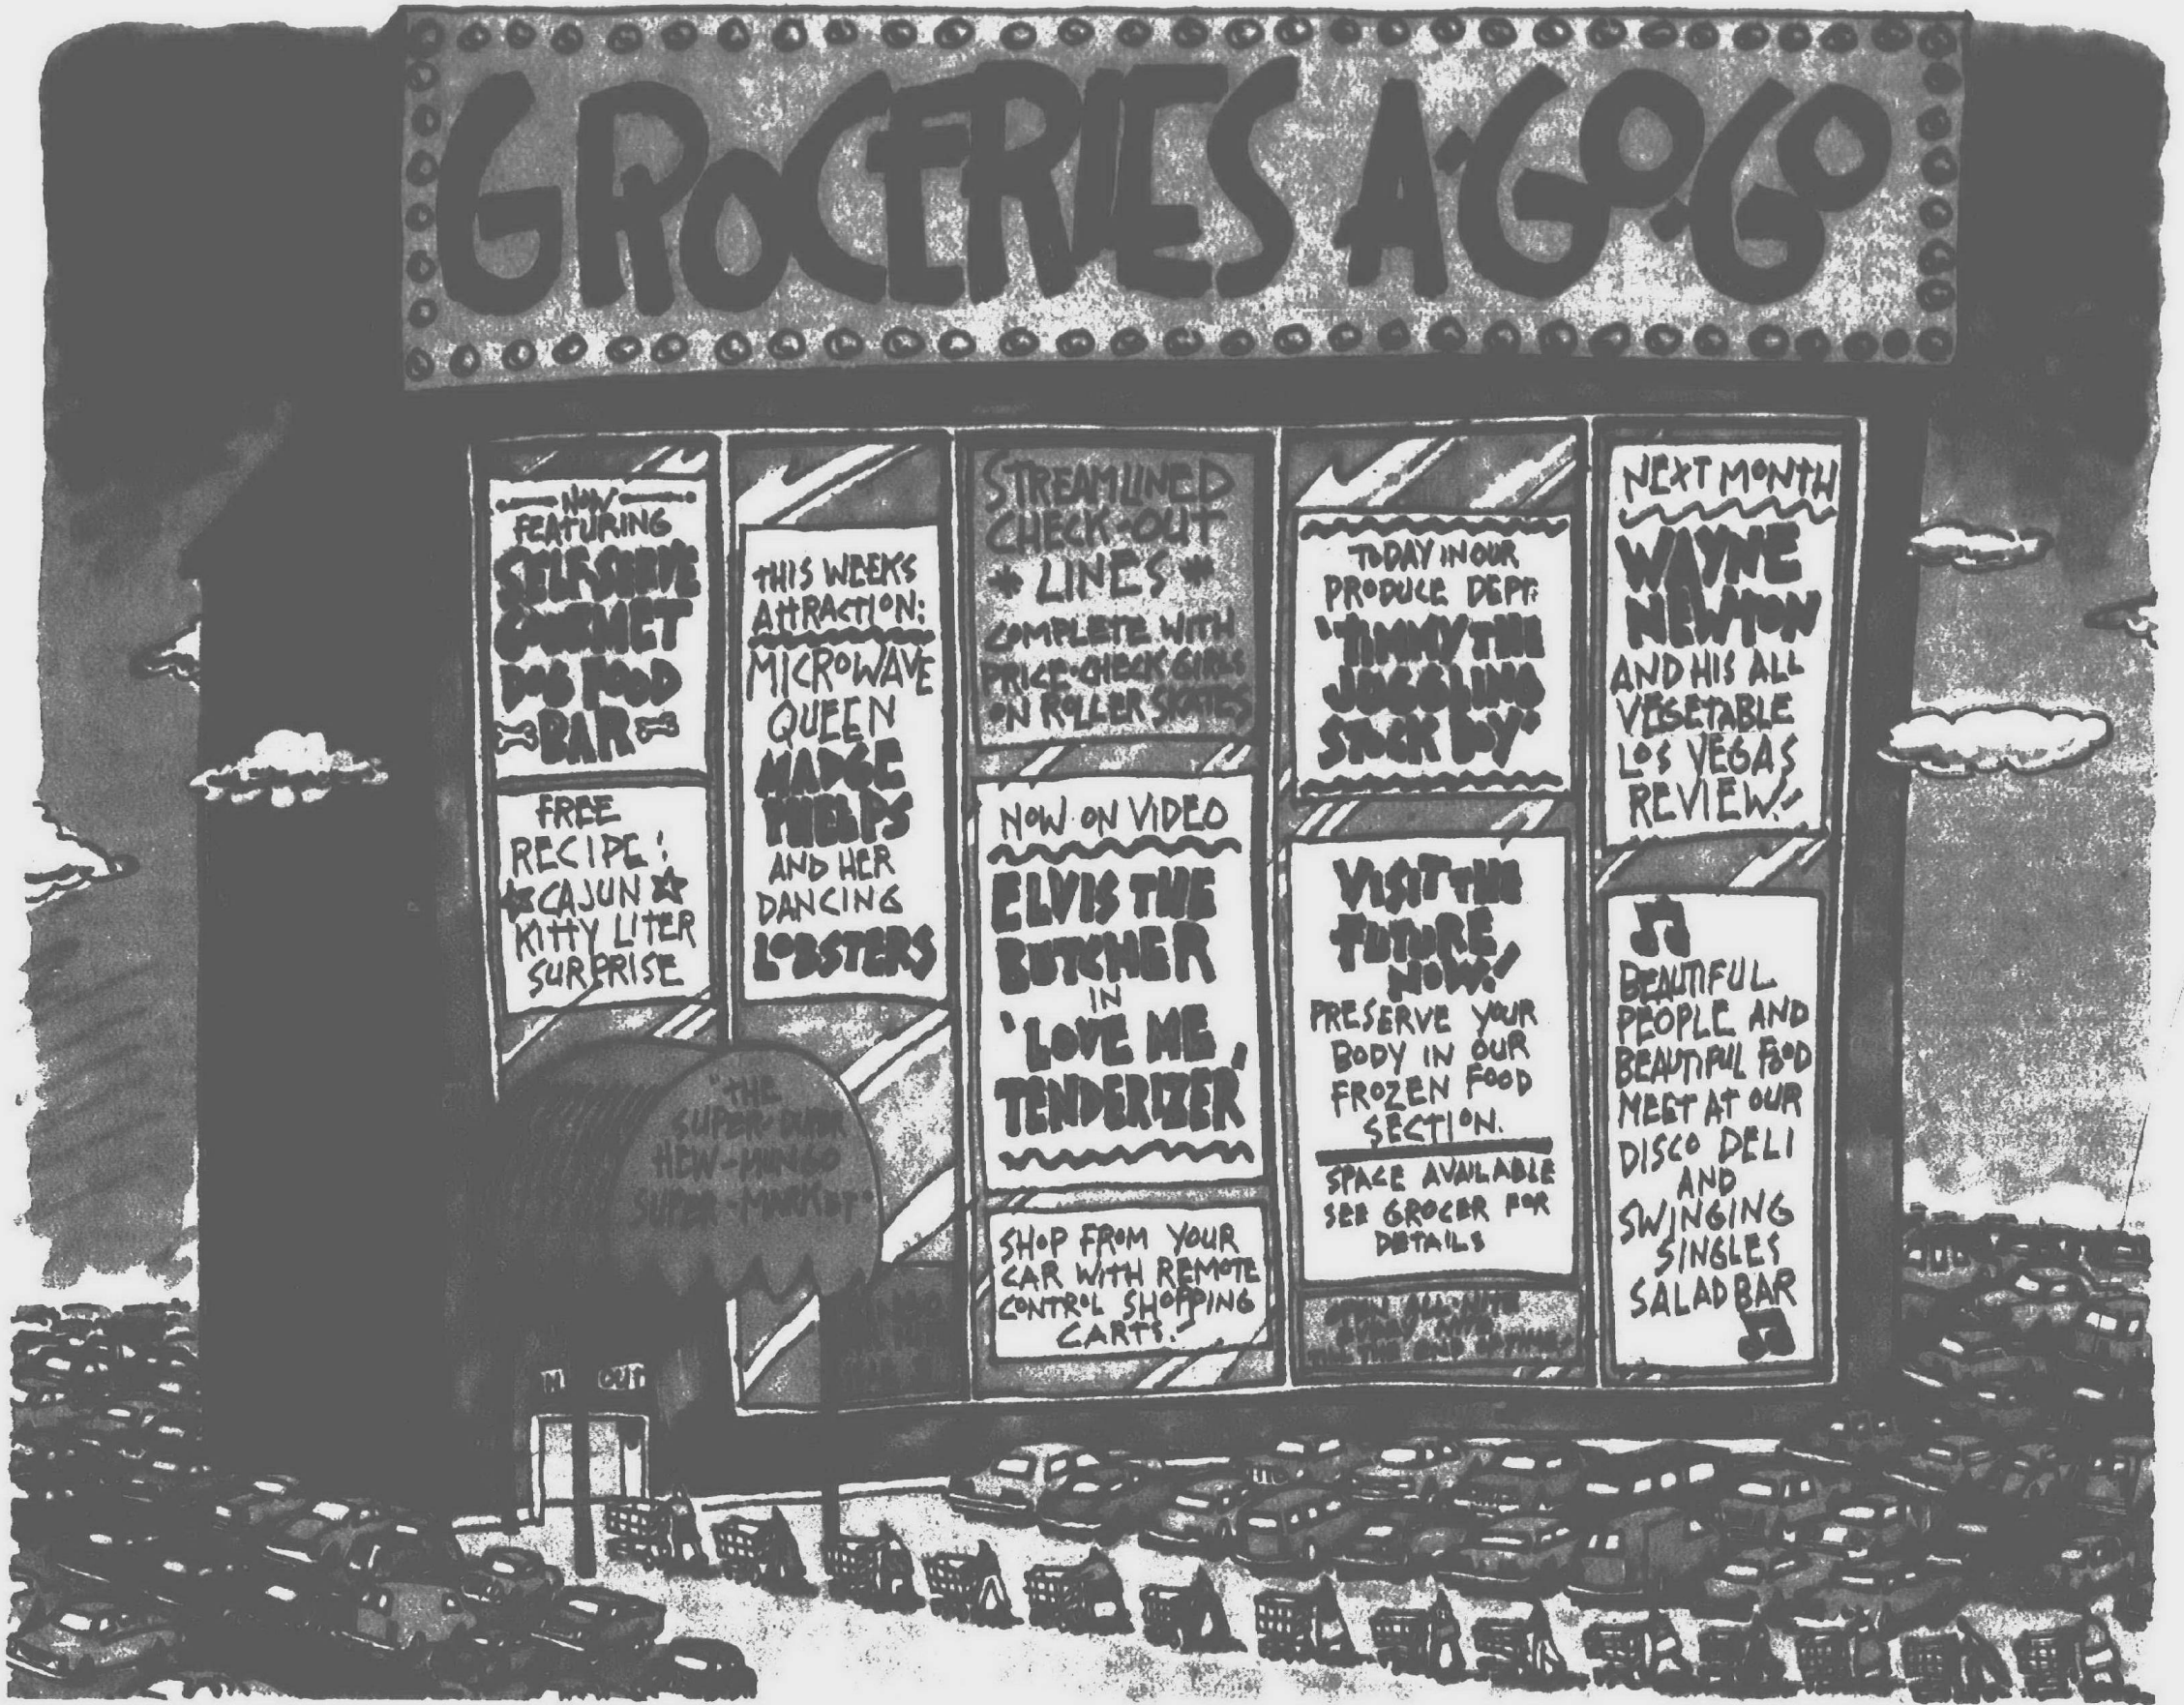 GROCERIES A-GO-GO
NOW
FEATURING
SELF-SERVE
GOURMET
DOG FOOD
BAR
FREE
RECIPE:
CAJUN
KITTY LITER
SURPRISE
THIS WEEKS
ATTRACTION:
MICROWAVE
QUEEN
MADGE
PHELPS
AND HER
DANCING
LOBSTERS
STREAMLINED
CHECK-OUT
* LINES *
COMPLETE WITH
PRICE-CHECK GIRLS
ON ROLLER SKATES
NOW ON VIDEO
ELVIS THE
BUTCHER
IN
'LOVE ME
TENDERIZER'
SHOP FROM YOUR
CAR WITH REMOTE
CONTROL SHOPPING
CARTS!
TODAY IN OUR
PRODUCE DEPT:
'TIMMY THE
JUGGLING
STOCK BOY'
VISIT THE
FUTURE,
NOW!
PRESERVE YOUR
BODY IN OUR
FROZEN FOOD
SECTION.
SPACE AVAILABLE
SEE GROCER FOR
DETAILS
OPEN ALL-NITE
NEXT MONTH
WAYNE
NEWTON
AND HIS ALL
VEGETABLE
LOS VEGAS
REVIEW!
BEAUTIFUL
PEOPLE AND
BEAUTIFUL FOOD
MEET AT OUR
DISCO DELI
AND
SWINGING
SINGLES
SALAD BAR
"THE
SUPER-DUPER
SUPER-MARKET"
IN OUT